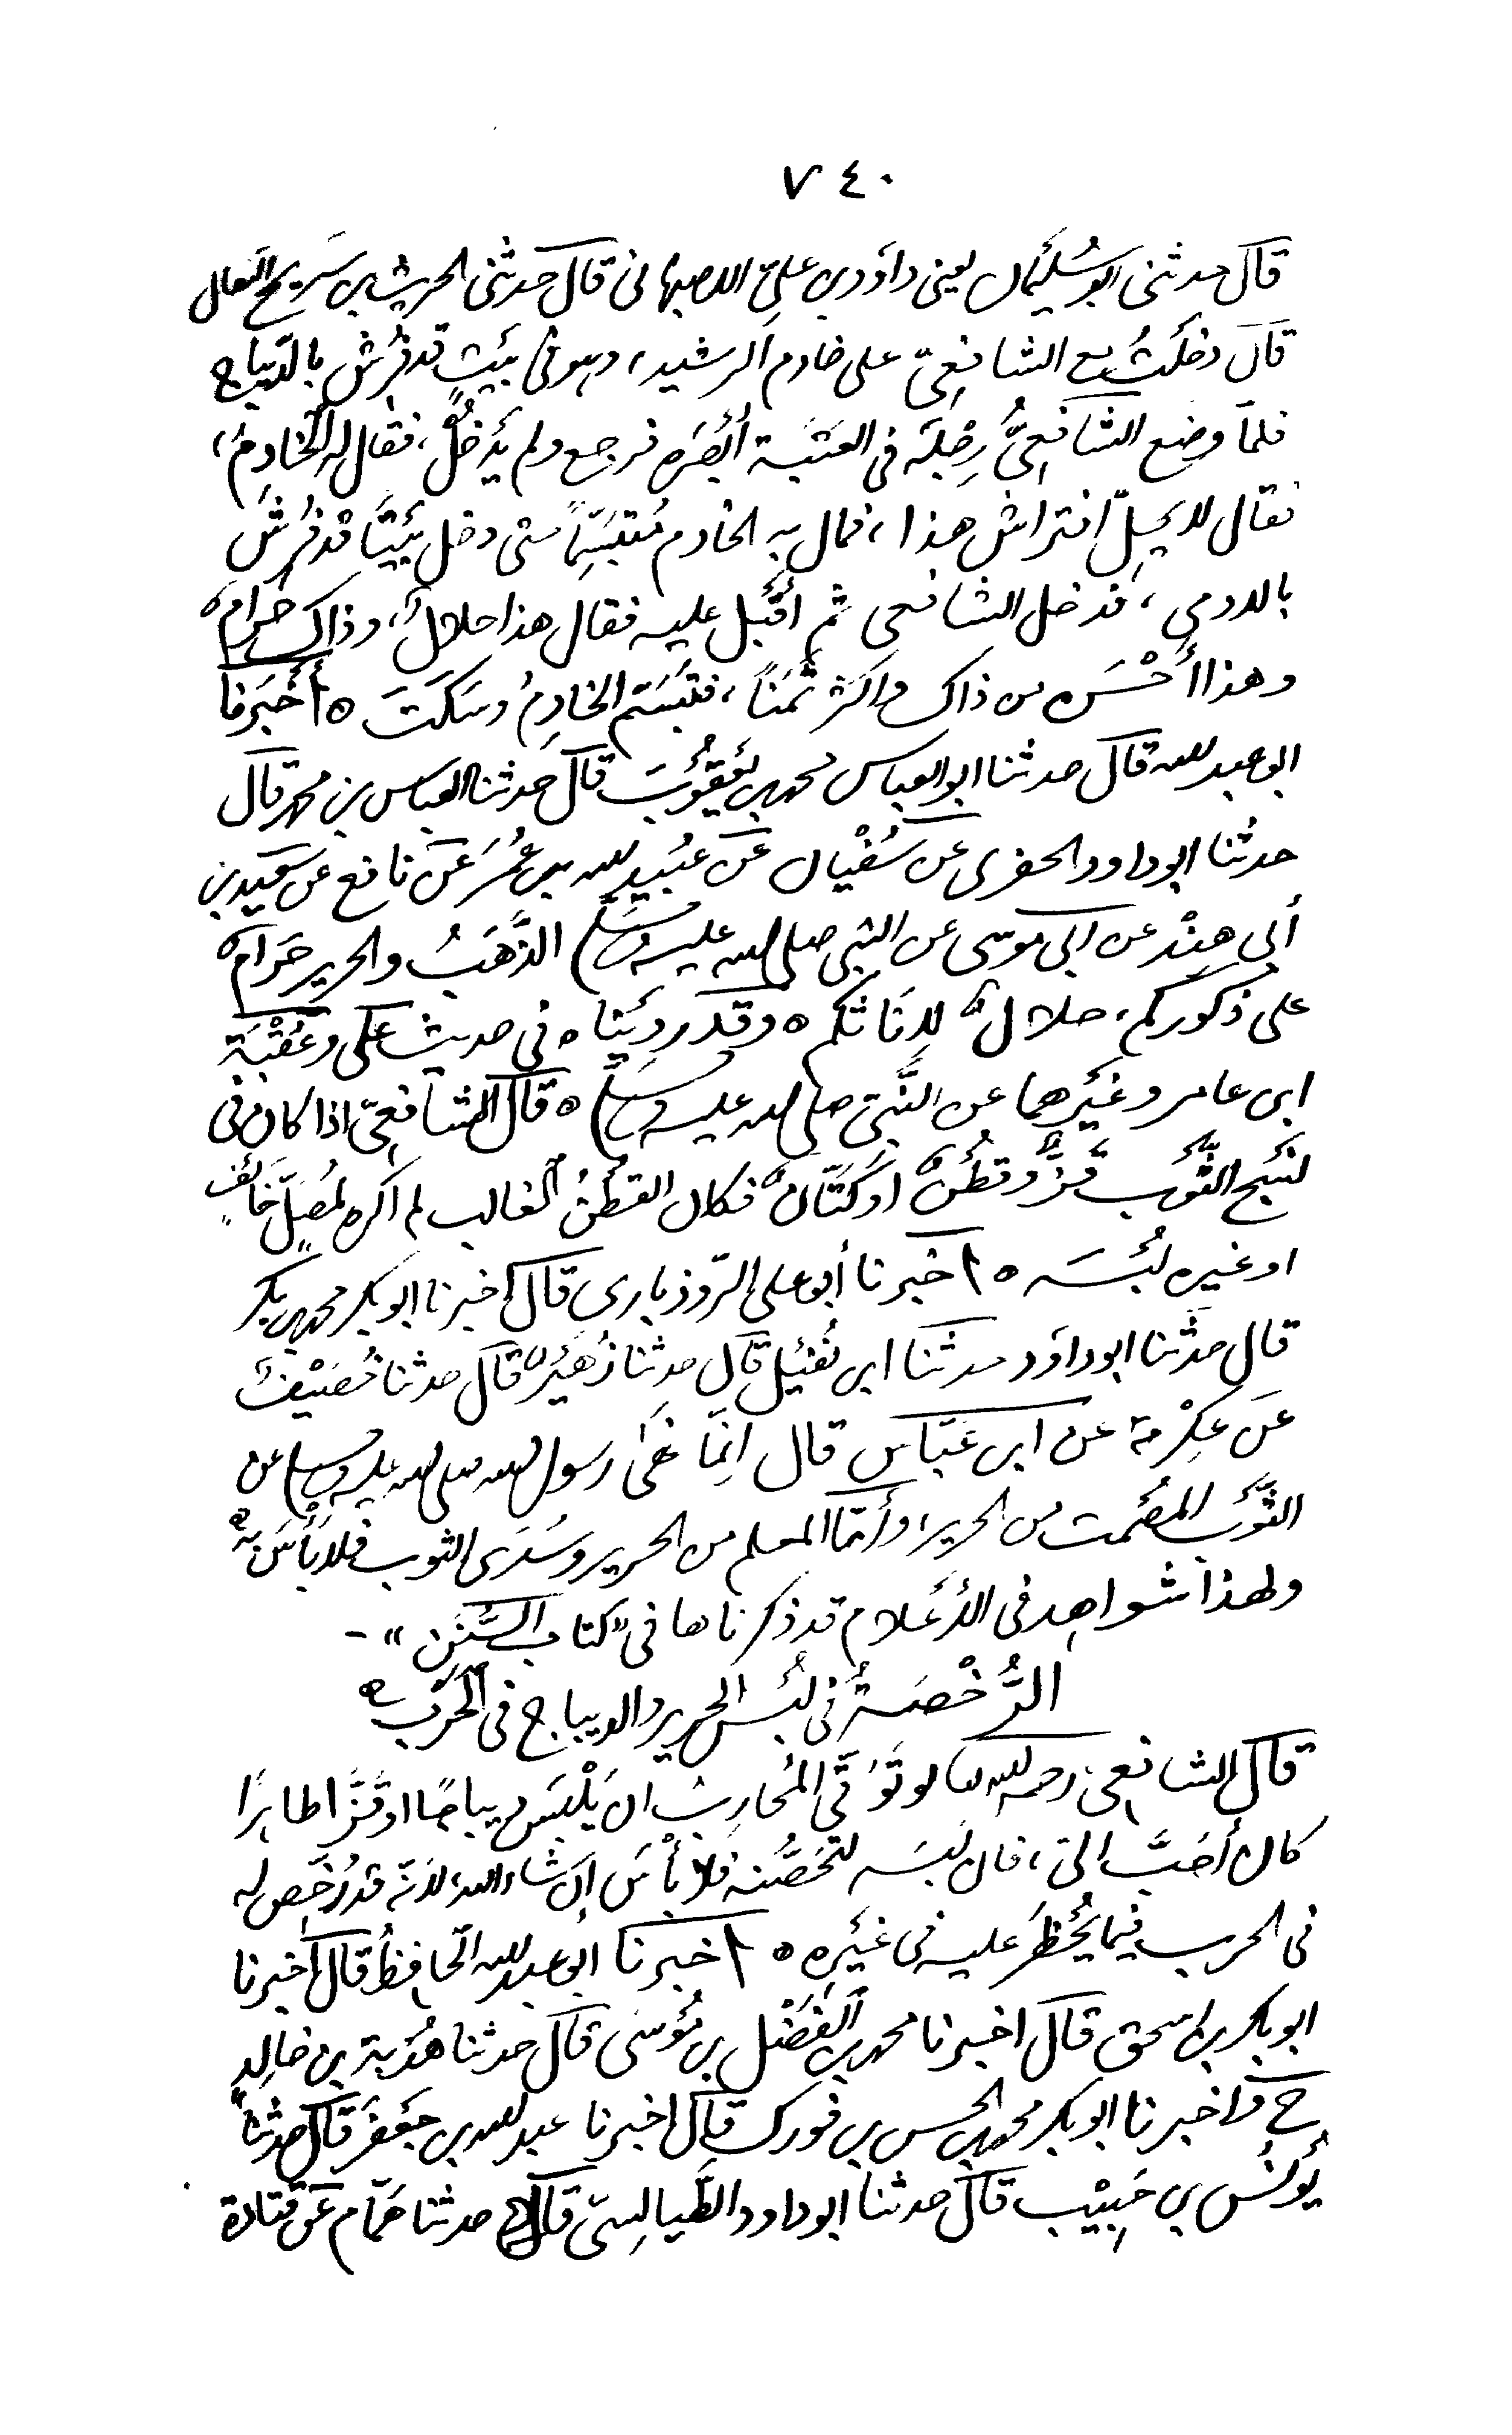 ٧٤٠
قال حدثنى ابو سُلَيْمان يعنى داوَد بن علىّ الاصبهانى قال حدثنى الحرث بن سَريج النقال
قالَ دخلتُ مع الشافعىّ على خادم الرشيد، وهو فى بَيتٍ قد فُرِش بالدِّيباج
فلمّا وضع الشافعىُّ رِجْلَه فى العَتَبَة أَبْصَره فرجع ولم يَدْخُلْ، فقال له الخادِمُ،
فقال لا يحِلّ افتراش هذا، فمال به الخادم مُتَبَسِّمًا حتى دخل بَيْتًا قد فُرِشَ
بالارمى، فدخل الشافعى ثم أَقْبل عليه فقال هذا حلالٌ، وذاك حَرامٌ
وهذا أَحْسَن من ذاك واكثر ثَمَنًا، فتَبَسَّم الخادِمُ وسَكَتَ ه أَخْبَرنا
ابو عبد الله قال حدثنا ابو العباس محمد بن يَعْقُوْبَ قال حَدثنا العباس بن محمد قال
حدثنا ابو داود الحفرى عن سُفْيان عن عُبَيد الله بن عُمَر عَن نافع عن سَعِيد بن
أبى هِنْد عن ابى موسى عن النبى صلى الله عليه وسَلَّم الذَّهَبُ والحرير حَرامٌ
على ذكوركم، حلالٌ لاِنَاثكم ه وقَد رويَنَاه فى حديث على وعُقْبَة
ابن عامر وغَيْرهما عن النَّبى صلى الله عليه وسلّم ه قال الشافعىّ اذا كان فى
نسَج الثَّوب قَزٌّ وقطْنٌ او كتّانٌ فكان القطنُ الغالب لم اكره لمُصَلّ خائفٍ
او غيره لُبْسَه ه اخبرنا أبو على الرّوذبارى قال اخبرنا ابو بكر محمد بن بكر
قال حدَّثنا ابو داوَد حدثنا ابن نُفَيْل قال حدثنا زُهَيْرٌ قال حدثنا خُصَيْفٌ
عَن عِكْرِمة عن ابن عَبّاس قال اِنَّما نهَى رسول الله صلى الله عليه وسلم عن
الثَّوب المصْمت من الحرير، وأَمّا المعلم من الحرير وسَدَى الثوب فلا بَأْسَ به ه
ولهذا شواهد فى الاَعلام قد ذكرناها فى "كتاب السُّنَن" -
الرُّخْصَةُ فى لُبْس الحرير والديباج فى الحَرْب ه
قال الشافعى رحمه الله لو تَوَقّى المُحارِبُ ان يَلْبَس ديباجًا او قَزًّا ظاهِرًا
كان أَحَبَّ الىّ، فان لَبسَه لتحَصُّنه فلا بَأْسَ اِن شاء الله، لاَنّه قد رُخّص له
فى الحرب فِيما يُحْظَر عليه فى غَيْرِه ه اخبرنا ابو عبد الله الحافظُ قال اخبرنا
ابو بكر بن اسحق قال اخبرنا محمد بن الفَضْل بن مُوْسَى قال حدثنا هُدْبَة بن خالِد
ح واخبرنا ابو بكر محمد بن الحسن بن فورك قال اخبرنا عبد الله بن جَعْفَر قال حدثنا
يُونُس بن حَبِيْب قال حدثنا ابو داود الطَّيالِسىّ قال حدثنا هَمّام عَن قتادة